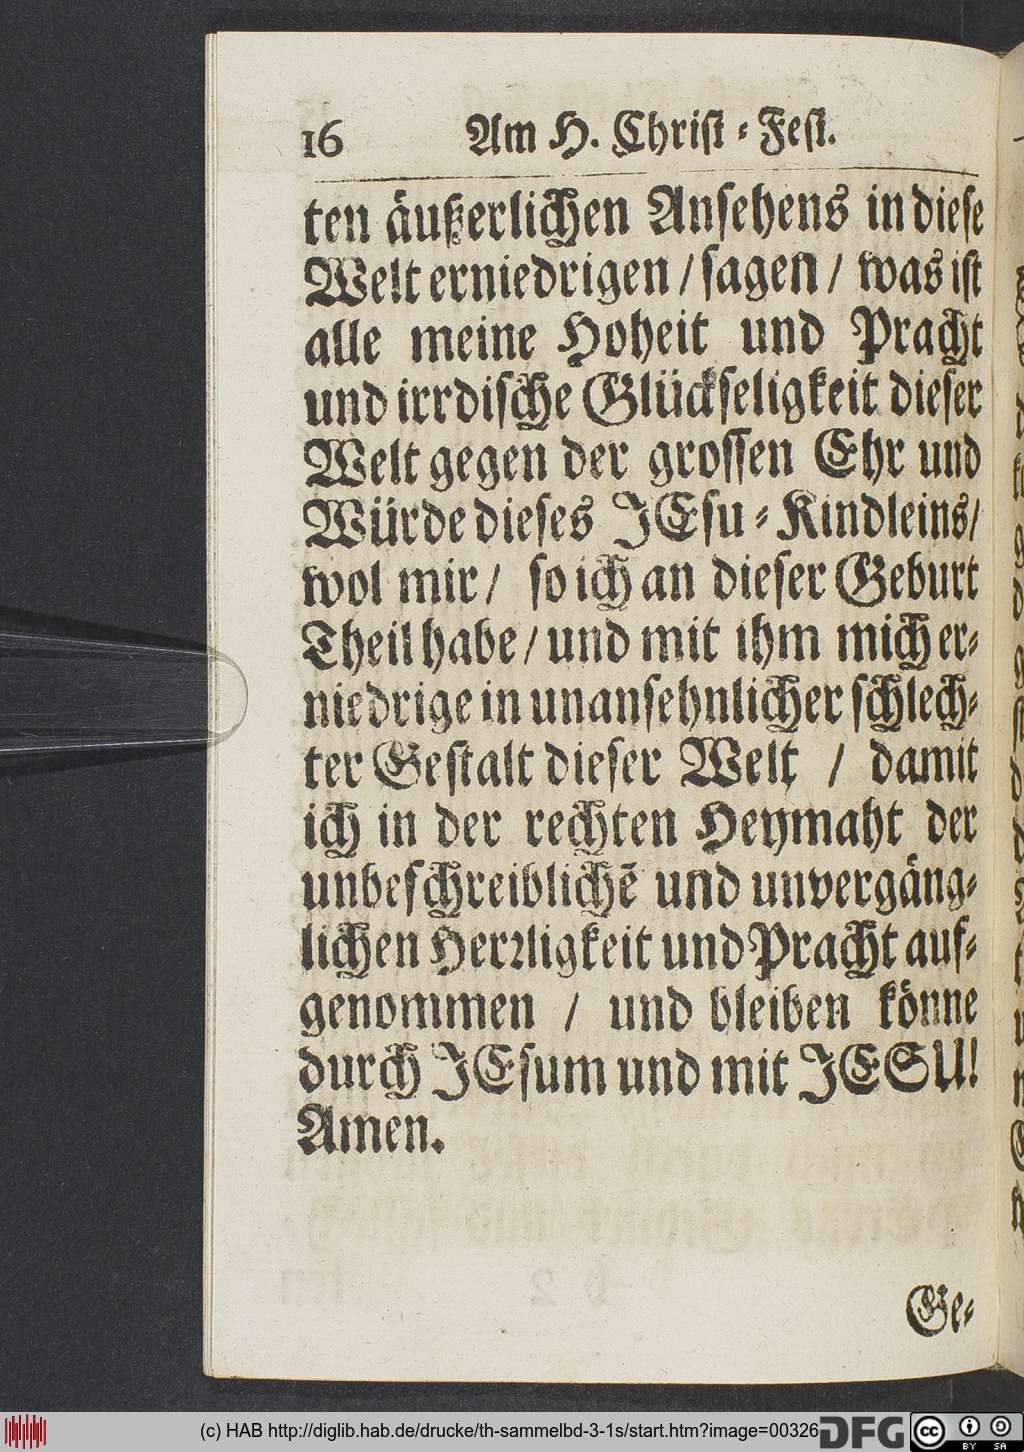 16 Am H. Christ = Fest.
ten äußerlichen Ansehens in diese
Welt erniedrigen / sagen / was ist
alle meine Hoheit und Pracht
und irrdische Glückseligkeit dieser
Welt gegen der grossen Ehr und
Würde dieses JEsu = Kindleins /
wol mir / so ich an dieser Geburt
Theil habe / und mit ihm mich er=
niedrige in unansehnlicher schlech=
ter Gestalt dieser Welt / damit
ich in der rechten Heymaht der
unbeschreiblichē und unvergäng=
lichen Herꝛligkeit und Pracht auf=
genommen / und bleiben könne
durch JEsum und mit JESU!
Amen.
Ge=
(c) HAB http://diglib.hab.de/drucke/th-sammelbd-3-1s/start.htm?image=00326
DFG
cc BY SA